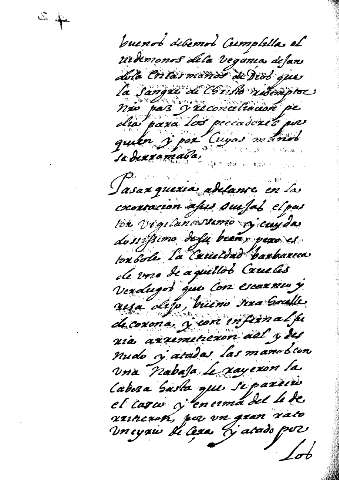 buenos debemos Cumplilla el
dela en las manos de Dios que
la Sangre de Christo redemptor
Nro paz y reconciliacion pe
dia para los peccadores por
quien y por Cuyas manos
se derramaba.
Pasar queria adelante en la
exortacion a sus ouejas el pas
tor Vigilantissimo y cuyda
dosissimo de su bien, pero es
torbole la Crueldad barbarica
de uno de aquellos Crueles
Verdugos que con escarnio y
risa dixo, bueno sera
de corona, y con infernal fu
ria arremetieron a el y des
nudo y atadas las manos con
una Nabaja le rayeron la
Cabeza hasta que se parecio
el Casco y encima del le de
rritieron por un gran rato
un cyrio de Cera y atado por
los